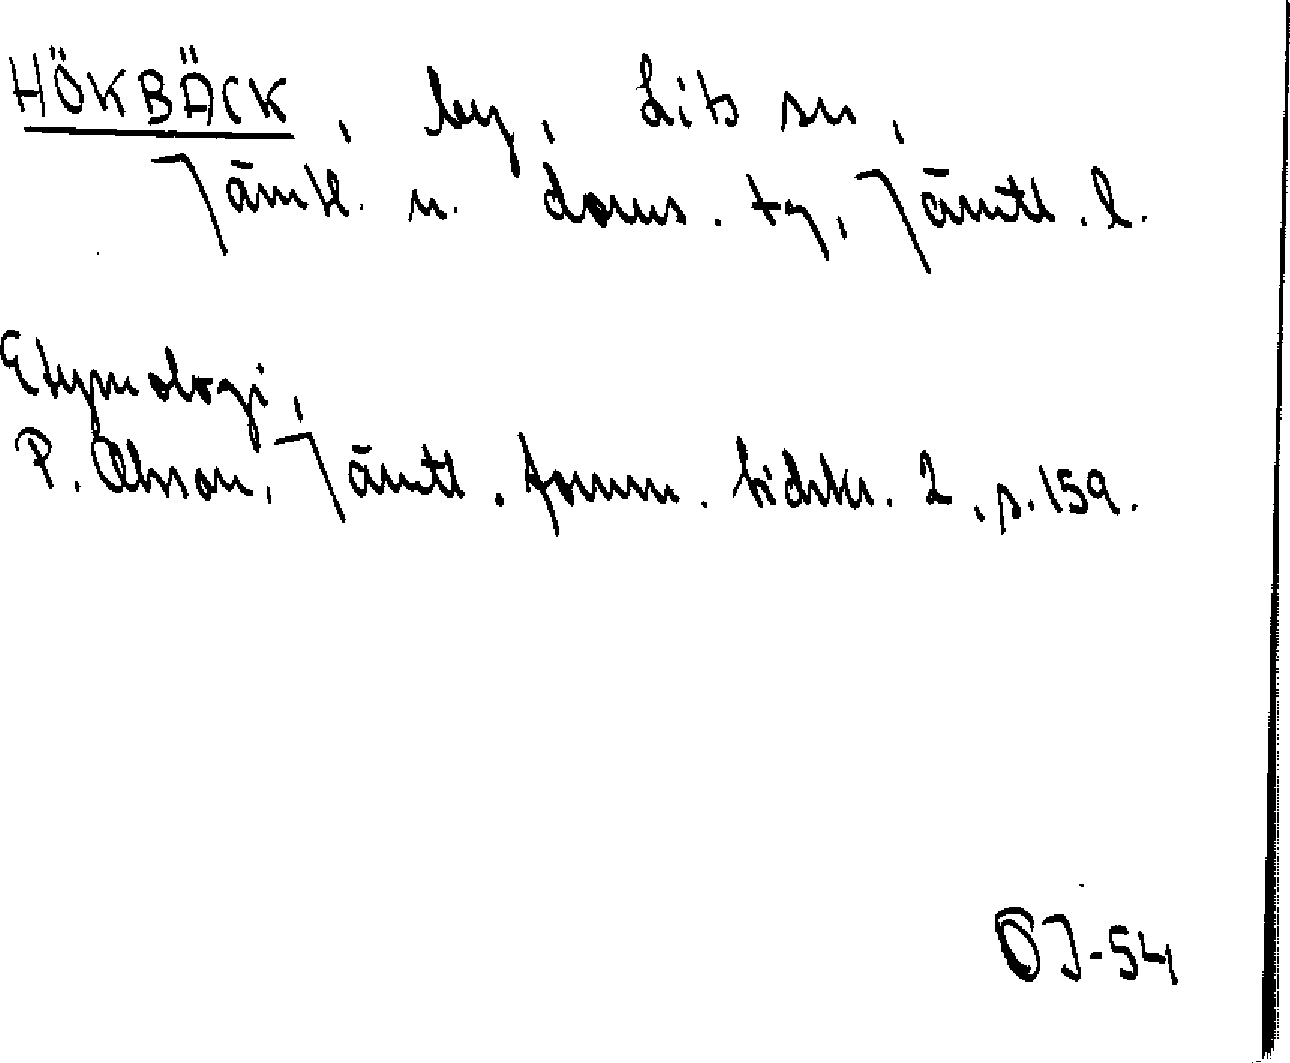 HÖKBÄCK, by, Lits sn,
Jämtl. n. doms. tg, Jämtl. l.
Etymologi,
P. Olsson, Jämtl. fornm. tidskr. 2, s. 159.
OJ-54